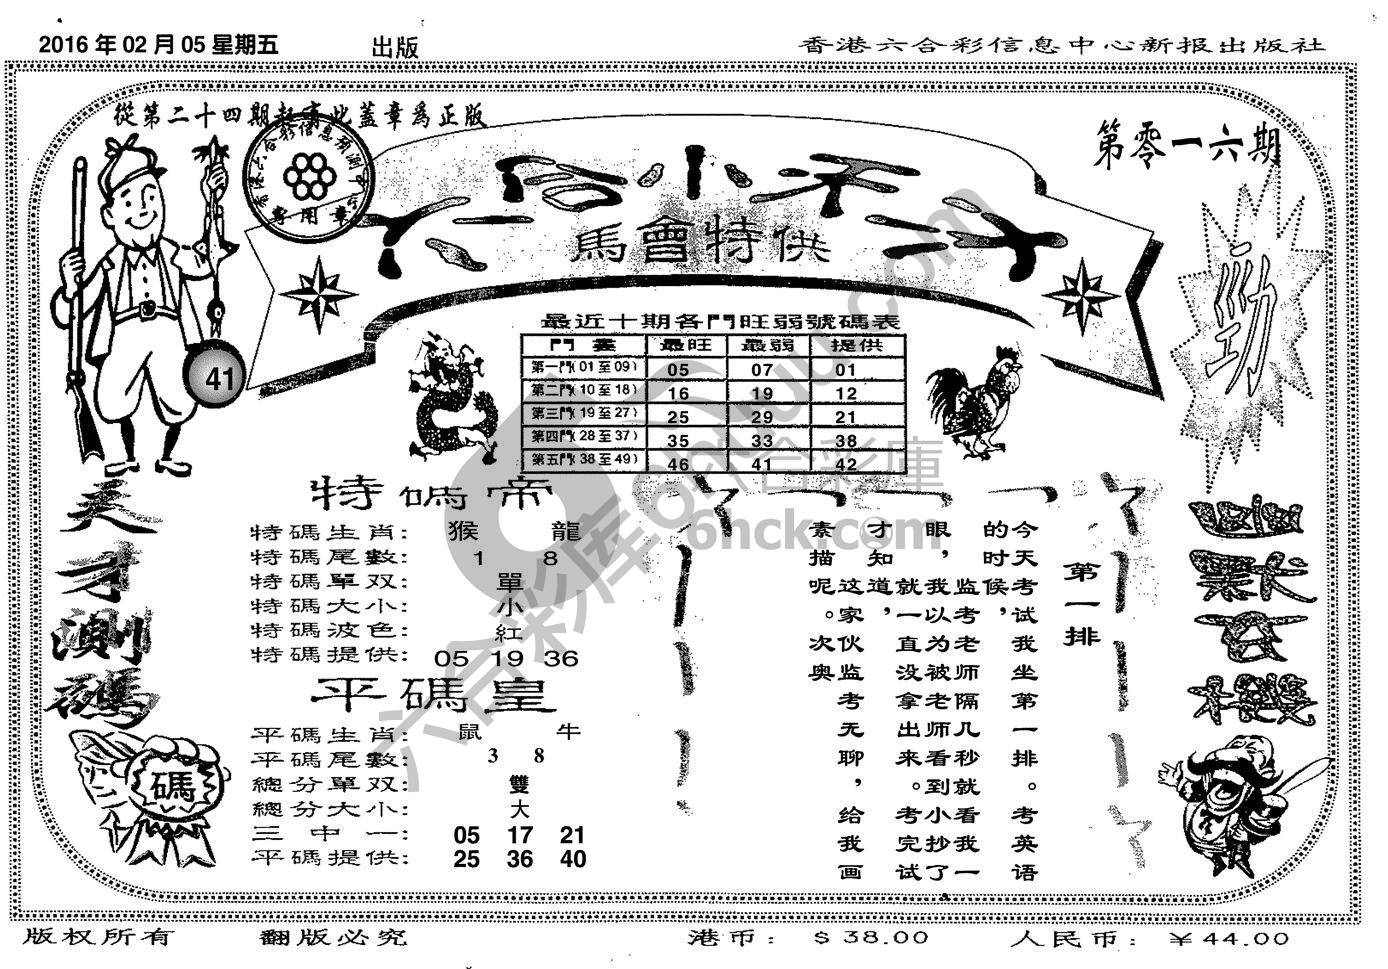 2016 年 02 月 05 星期五
出版
香港六合彩信息中心新报出版社
從第二十四期起寄此蓋章爲正版
第零一六期
六合小天子
馬會特供
勁
最近十期各門旺弱號碼表
門 最旺 最弱 提供
第一門( 01 至 09 ) 05 07 01
第二門( 10 至 18 ) 16 19 12
第三門( 19 至 27 ) 25 29 21
第四門( 28 至 37 ) 35 33 38
第五門( 38 至 49 ) 46 41 42
41
天才測碼
碼
特碼帝
特碼生肖: 猴 龍
特碼尾數: 1 8
特碼單双: 單
特碼大小: 小
特碼波色: 紅
特碼提供: 05 19 36
平碼皇
平碼生肖: 鼠 牛
平碼尾數: 3 8
總分單双: 雙
總分大小: 大
三中一: 05 17 21
平碼提供: 25 36 40
第一排
今天考试我坐第一排。考英语
的时候，监考老师隔几秒就看我一
眼，我以为被老师看到小抄了
就一直没拿出来。考完试
才知道，
这家伙监考无聊，给我画
素描呢。次奥
六合彩库 6huu.com
六合彩庫
6hck.com
版权所有
翻版必究
港币： $ 38.00
人民币： ¥ 44.00